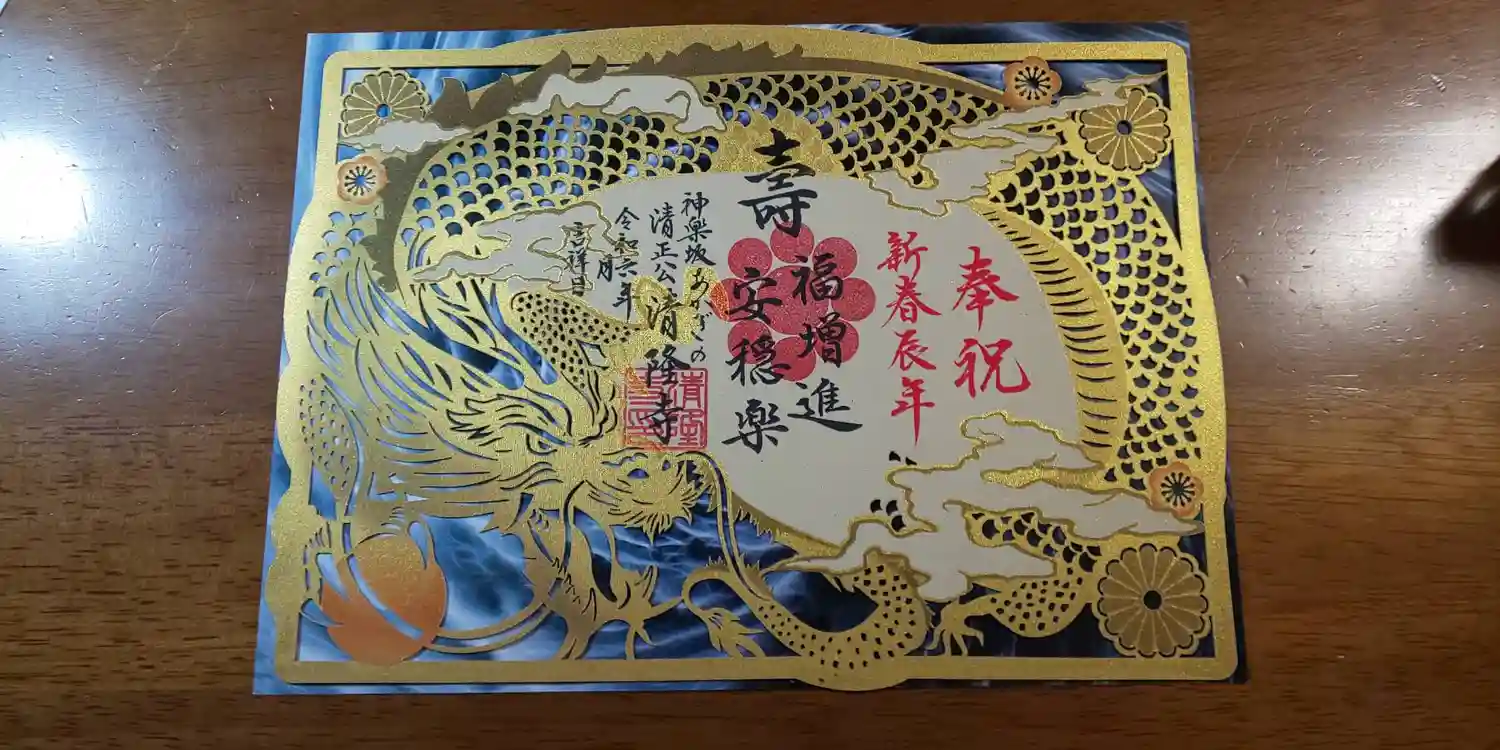 奉祝
新春辰年
壽
福増進
安穏楽
神楽坂あかぎの
清正公清隆寺
令和六年
月
吉祥日
清隆